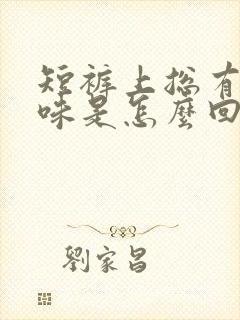 短裤上总有
味是怎麼回
劉家昌